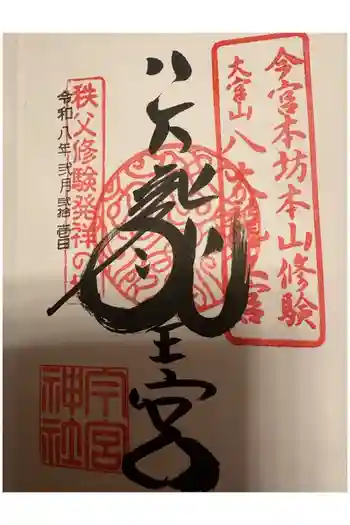 今宮本坊本山修験
大宮山八大龍王宮
八大龍王宮
秩父修験発祥の
令和八年弐月弐拾壱日
今宮神社